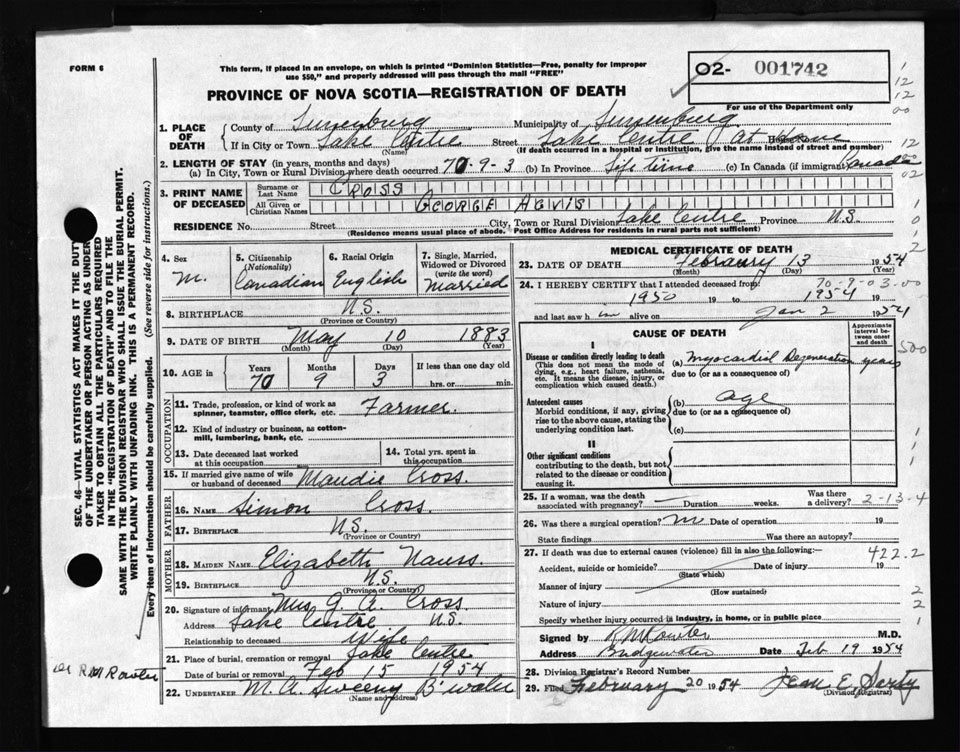 FORM 6
This form, if placed in an envelope, on which is printed "Dominion Statistics—Free, penalty for improper
use $50," and properly addressed will pass through the mail "FREE"
02- 001742
For use of the Department only
PROVINCE OF NOVA SCOTIA—REGISTRATION OF DEATH
1. PLACE OF DEATH
County of Lunenburg Municipality of Lunenburg
If in City or Town Lake Centre Street Lake Centre (At Home
(Name) (If death occurred in a hospital or institution, give the name instead of street and number)
2. LENGTH OF STAY (in years, months and days)
(a) In City, Town or Rural Division where death occurred 70-9-3 (b) In Province Life Time (c) In Canada (if immigrant) Canada
3. PRINT NAME OF DECEASED
Surname or Last Name CROSS
All Given or Christian Names GEORGE ALVIS
RESIDENCE No. Street City, Town or Rural Division Lake Centre Province N.S.
(Residence means usual place of abode. Post Office Address for residents in rural parts not sufficient)
4. Sex
M.
5. Citizenship (Nationality)
Canadian
6. Racial Origin
English
7. Single, Married, Widowed or Divorced (write the word)
Married
8. BIRTHPLACE N.S.
(Province or Country)
9. DATE OF BIRTH May 10 1883
(Month) (Day) (Year)
10. AGE in Years Months Days If less than one day old
70 9 3 hrs. or min.
OCCUPATION
11. Trade, profession, or kind of work as spinner, teamster, office clerk, etc. Farmer.
12. Kind of industry or business, as cotton-mill, lumbering, bank, etc.
13. Date deceased last worked at this occupation
14. Total yrs. spent in this occupation
15. If married give name of wife or husband of deceased Maudie Cross.
FATHER
16. NAME Simon Cross.
17. BIRTHPLACE N.S.
(Province or Country)
MOTHER
18. MAIDEN NAME Elizabeth Nauss.
19. BIRTHPLACE N.S.
(Province or Country)
20. Signature of informant Mrs G. A. Cross.
Address Lake Centre N.S.
Relationship to deceased Wife
21. Place of burial, cremation or removal Lake Centre
Date of burial or removal Feb 15 1954
22. UNDERTAKER M. A. Sweeny B'water
(Name and address)
MEDICAL CERTIFICATE OF DEATH
23. DATE OF DEATH February 13 1954
(Month) (Day) (Year)
24. I HEREBY CERTIFY that I attended deceased from 70-9-03-00
1950 19 to 1954 19
and last saw h im alive on Jan 2 1954
CAUSE OF DEATH
Approximate interval between onset and death
I
Disease or condition directly leading to death
(This does not mean the mode of dying, e.g., heart failure, asthenia, etc. It means the disease, injury, or complication which caused death.)
(a) Myocardial Degeneration years
due to (or as a consequence of)
Antecedent causes
Morbid conditions, if any, giving rise to the above cause, stating the underlying condition last.
(b) age
due to (or as a consequence of)
(c)
II
Other significant conditions
contributing to the death, but not related to the disease or condition causing it
25. If a woman, was the death associated with pregnancy? Duration weeks. Was there a delivery? 2-13-4
26. Was there a surgical operation? Date of operation 19
State findings Was there an autopsy?
27. If death was due to external causes (violence) fill in also the following: 422.2
Accident, suicide or homicide? Date of injury 19
(State which)
Manner of injury
(How sustained)
Nature of injury
Specify whether injury occurred in industry, in home, or in public place
Signed by R M Rowter M.D.
Address Bridgewater Date Feb 19 1954
28. Division Registrar's Record Number
29. Filed February 20 1954 Jean E.
(Division Registrar)
SEC. 46—VITAL STATISTICS ACT MAKES IT THE DUTY
OF THE UNDERTAKER OR PERSON ACTING AS UNDER-
TAKER TO OBTAIN ALL THE PARTICULARS REQUIRED
IN THE "REGISTRATION OF DEATH" AND TO FILE THE
SAME WITH THE DIVISION REGISTRAR WHO SHALL ISSUE THE BURIAL PERMIT.
WRITE PLAINLY WITH UNFADING INK. THIS IS A PERMANENT RECORD.
Every item of information should be carefully supplied. (See reverse side for instructions.)